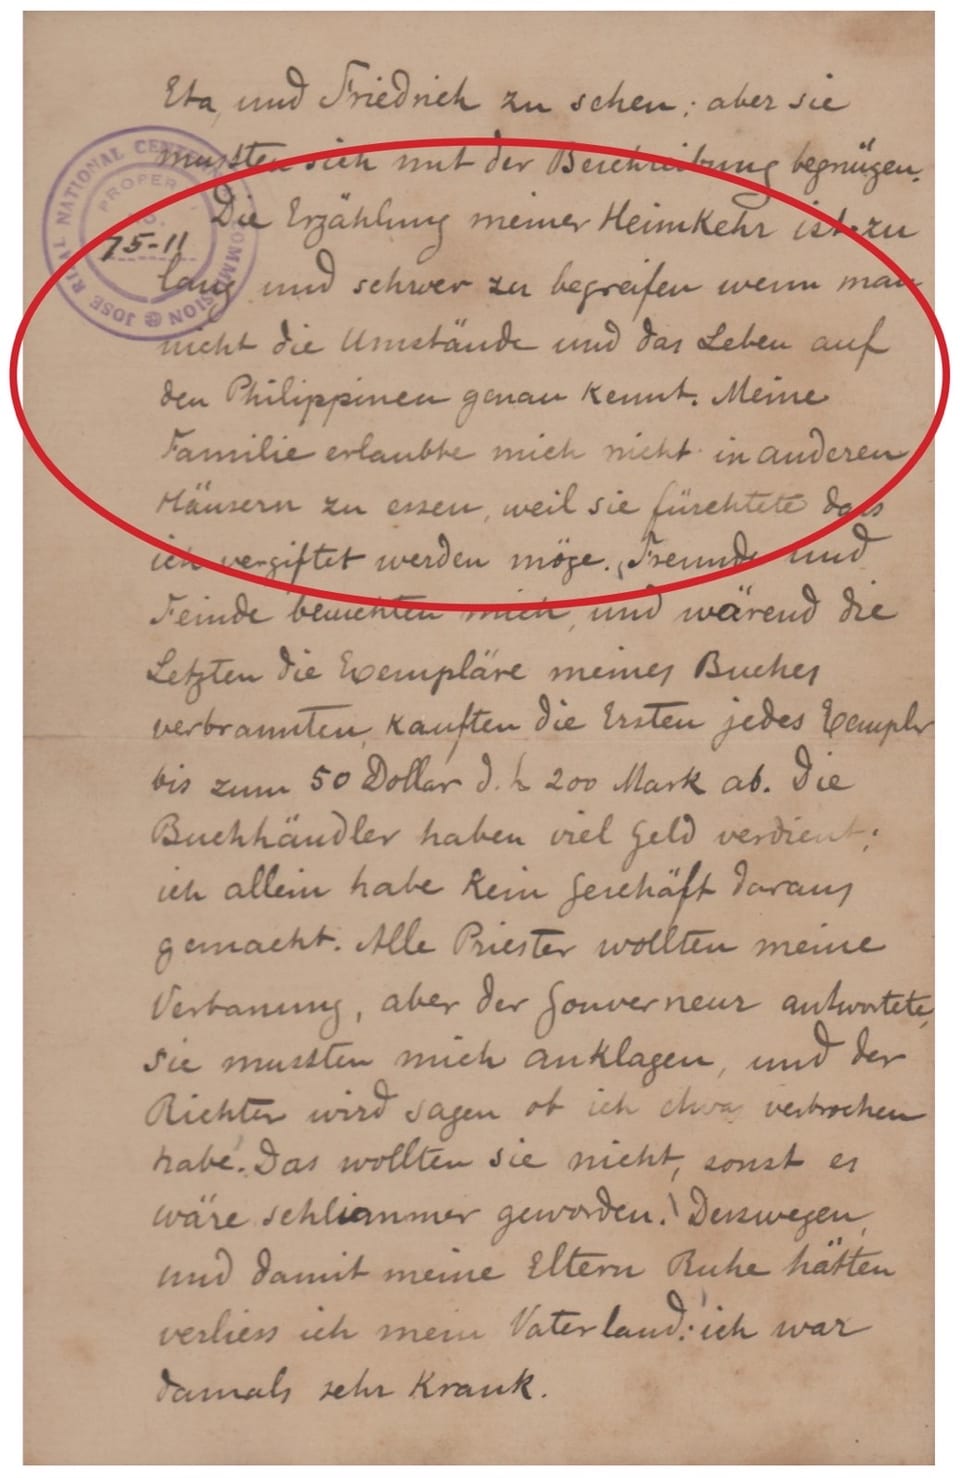 Eta und Friedrich zu sehen; aber sie
mussten sich mit der Beschreibung begnügen.
Die Erzählung meiner Heimkehr ist zu
lang und schwer zu begreifen wenn man
nicht die Umstände und das Leben auf
den Philippinen genau kennt. Meine
Familie erlaubte mich nicht in anderen
Häusern zu essen, weil sie fürchtete dass
ich vergiftet werden möge. Freunde und
Feinde besuchten mich, und wärend die
Letzten die Exempläre meines Buches
verbrannten, kauften die Ersten jedes Exemplr
bis zum 50 Dollar d. h 200 Mark ab. Die
Buchhändler haben viel Geld verdient;
ich allein habe kein Geschäft daraus
gemacht. Alle Priester wollten meine
Verbanung, aber der Gouverneur antwortete,
sie mussten mich anklagen, und der
Richter wird sagen ob ich etwas verbrochen
habe. Das wollten sie nicht, sonst es
wäre schlimmer geworden. Desswegen,
und damit meine Eltern Ruhe hätten
verliess ich mein Vaterland: ich war
damals sehr krank.
JOSE RIZAL NATIONAL CENTENNIAL COMMISSION
PROPERTY
NO.
75-11